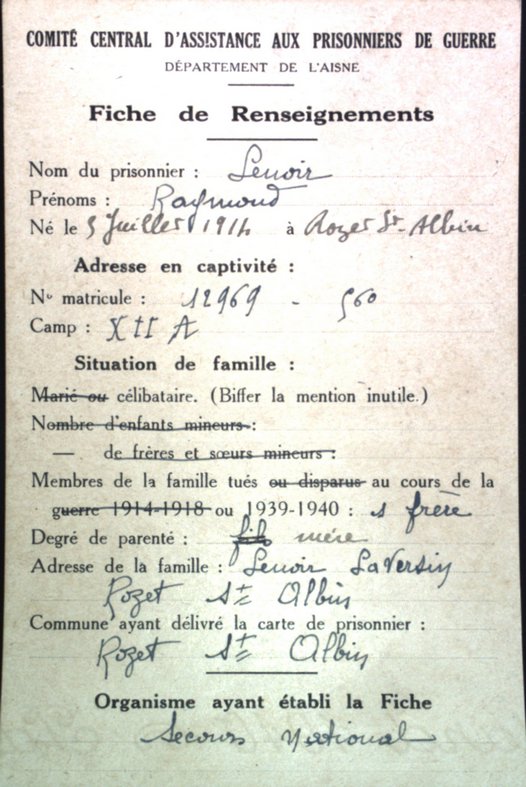 COMITÉ CENTRAL D'ASSISTANCE AUX PRISONNIERS DE GUERRE
DÉPARTEMENT DE L'AISNE
Fiche de Renseignements
Nom du prisonnier : Lenoir
Prénoms : Raymond
Né le 5 Juillet 1914 à Rozet St-Albin
Adresse en captivité :
No matricule : 12969 - 560
Camp : XII A
Situation de famille :
Marié ou célibataire. (Biffer la mention inutile.)
Nombre d'enfants mineurs :
— de frères et sœurs mineurs :
Membres de la famille tués ou disparus au cours de la
guerre 1914-1918 ou 1939-1940 : 1 frère
Degré de parenté : fils mère
Adresse de la famille : Lenoir Laversin
Rozet St Albin
Commune ayant délivré la carte de prisonnier :
Rozet St Albin
Organisme ayant établi la Fiche
Secours National